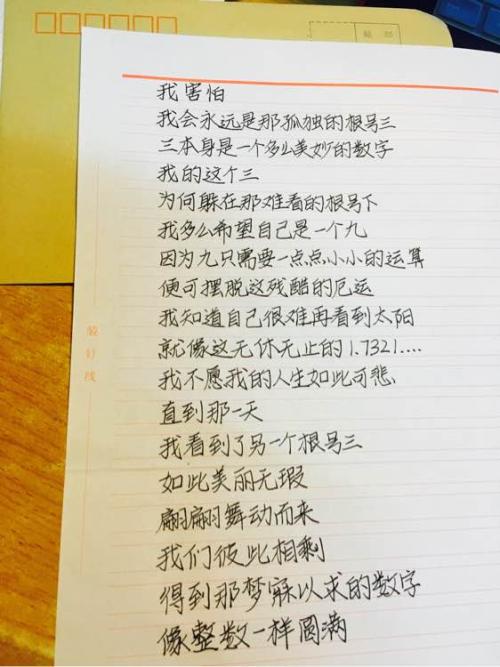 贴邮
我害怕
我会永远是那孤独的根号三
三本身是一个多么美妙的数字
我的这个三
为何躲在那难看的根号下
我多么希望自己是一个九
因为九只需要一点点小小的运算
便可摆脱这残酷的厄运
我知道自己很难再看到太阳
就像这无休无止的1.7321....
我不愿我的人生如此可悲
直到那一天
我看到了另一个根号三
如此美丽无瑕
翩翩舞动而来
我们彼此相剩
得到那梦寐以求的数字
像整数一样圆满
装订线